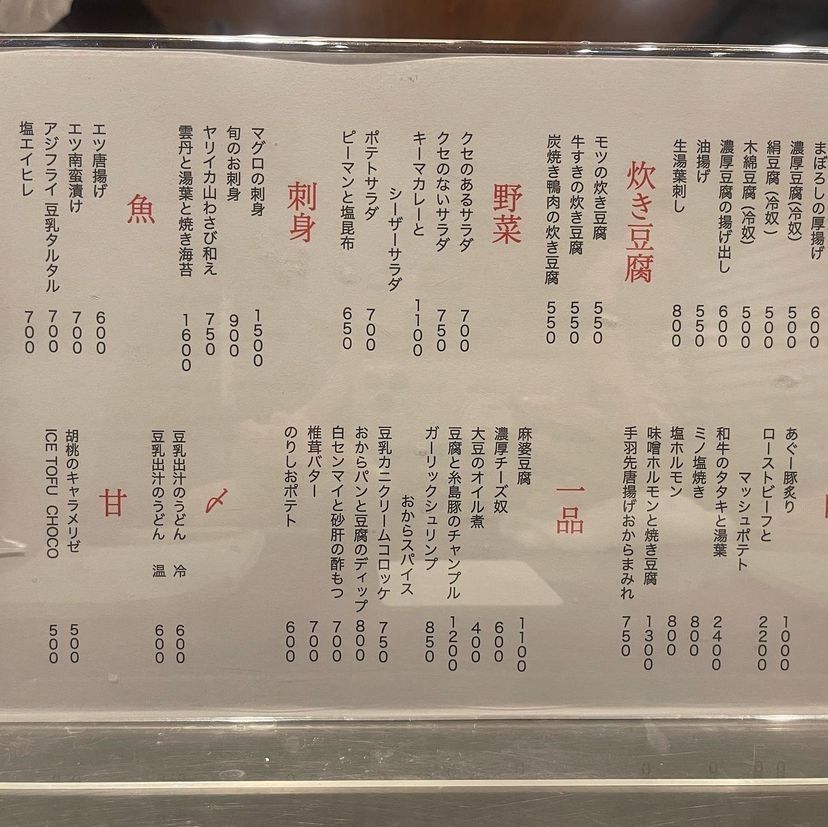 まぼろしの厚揚げ 600
濃厚豆腐（冷奴） 500
絹豆腐（冷奴） 500
木綿豆腐（冷奴） 500
濃厚豆腐の揚げ出し 600
油揚げ 550
生湯葉刺し 800
炊き豆腐
モツの炊き豆腐 550
牛すきの炊き豆腐 550
炭焼き鴨肉の炊き豆腐 550
野菜
クセのあるサラダ 700
クセのないサラダ 750
キーマカレーと
シーザーサラダ 1100
ポテトサラダ 700
ピーマンと塩昆布 650
刺身
マグロの刺身 1500
旬のお刺身 900
ヤリイカ山わさび和え 750
雲丹と湯葉と焼き海苔 1600
魚
エツ唐揚げ 600
エツ南蛮漬け 700
アジフライ 豆乳タルタル 700
塩エイヒレ 700
あぐー豚炙り 1000
ローストビーフと
マッシュポテト 2200
和牛のタタキと湯葉 2400
ミノ塩焼き 800
塩ホルモン 800
味噌ホルモンと焼き豆腐 1300
手羽先唐揚げおからまみれ 750
一品
麻婆豆腐 1100
濃厚チーズ奴 600
大豆のオイル煮 400
豆腐と糸島豚のチャンプル 1200
ガーリックシュリンプ
おからスパイス 850
豆乳カニクリームコロッケ 750
おからパンと豆腐のディップ 800
白センマイと砂肝の酢もつ 700
椎茸バター 700
のりしおポテト 600
〆
豆乳出汁のうどん 冷 600
豆乳出汁のうどん 温 600
甘
胡桃のキャラメリゼ 500
ICE TOFU CHOCO 500